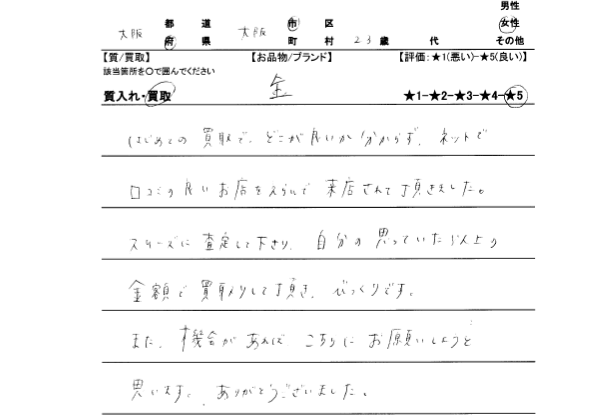 男性
大阪 都道府県 大阪 市区町村 23歳 代 女性
その他
【質/買取】 【お品物/ブランド】 【評価:★1(悪い)-★5(良い)】
該当箇所を○で囲んでください
質入れ・買取 金 ★1-★2-★3-★4-★5
はじめての買取で、どこが良いか分からず、ネットで
口コミの良いお店をえらんで来店されて頂きました。
スムーズに査定して下さり、自分の思っていた以上の
金額で買取りして頂き、びっくりです。
また、機会があれば こちらに お願いしようと
思います。ありがとうございました。